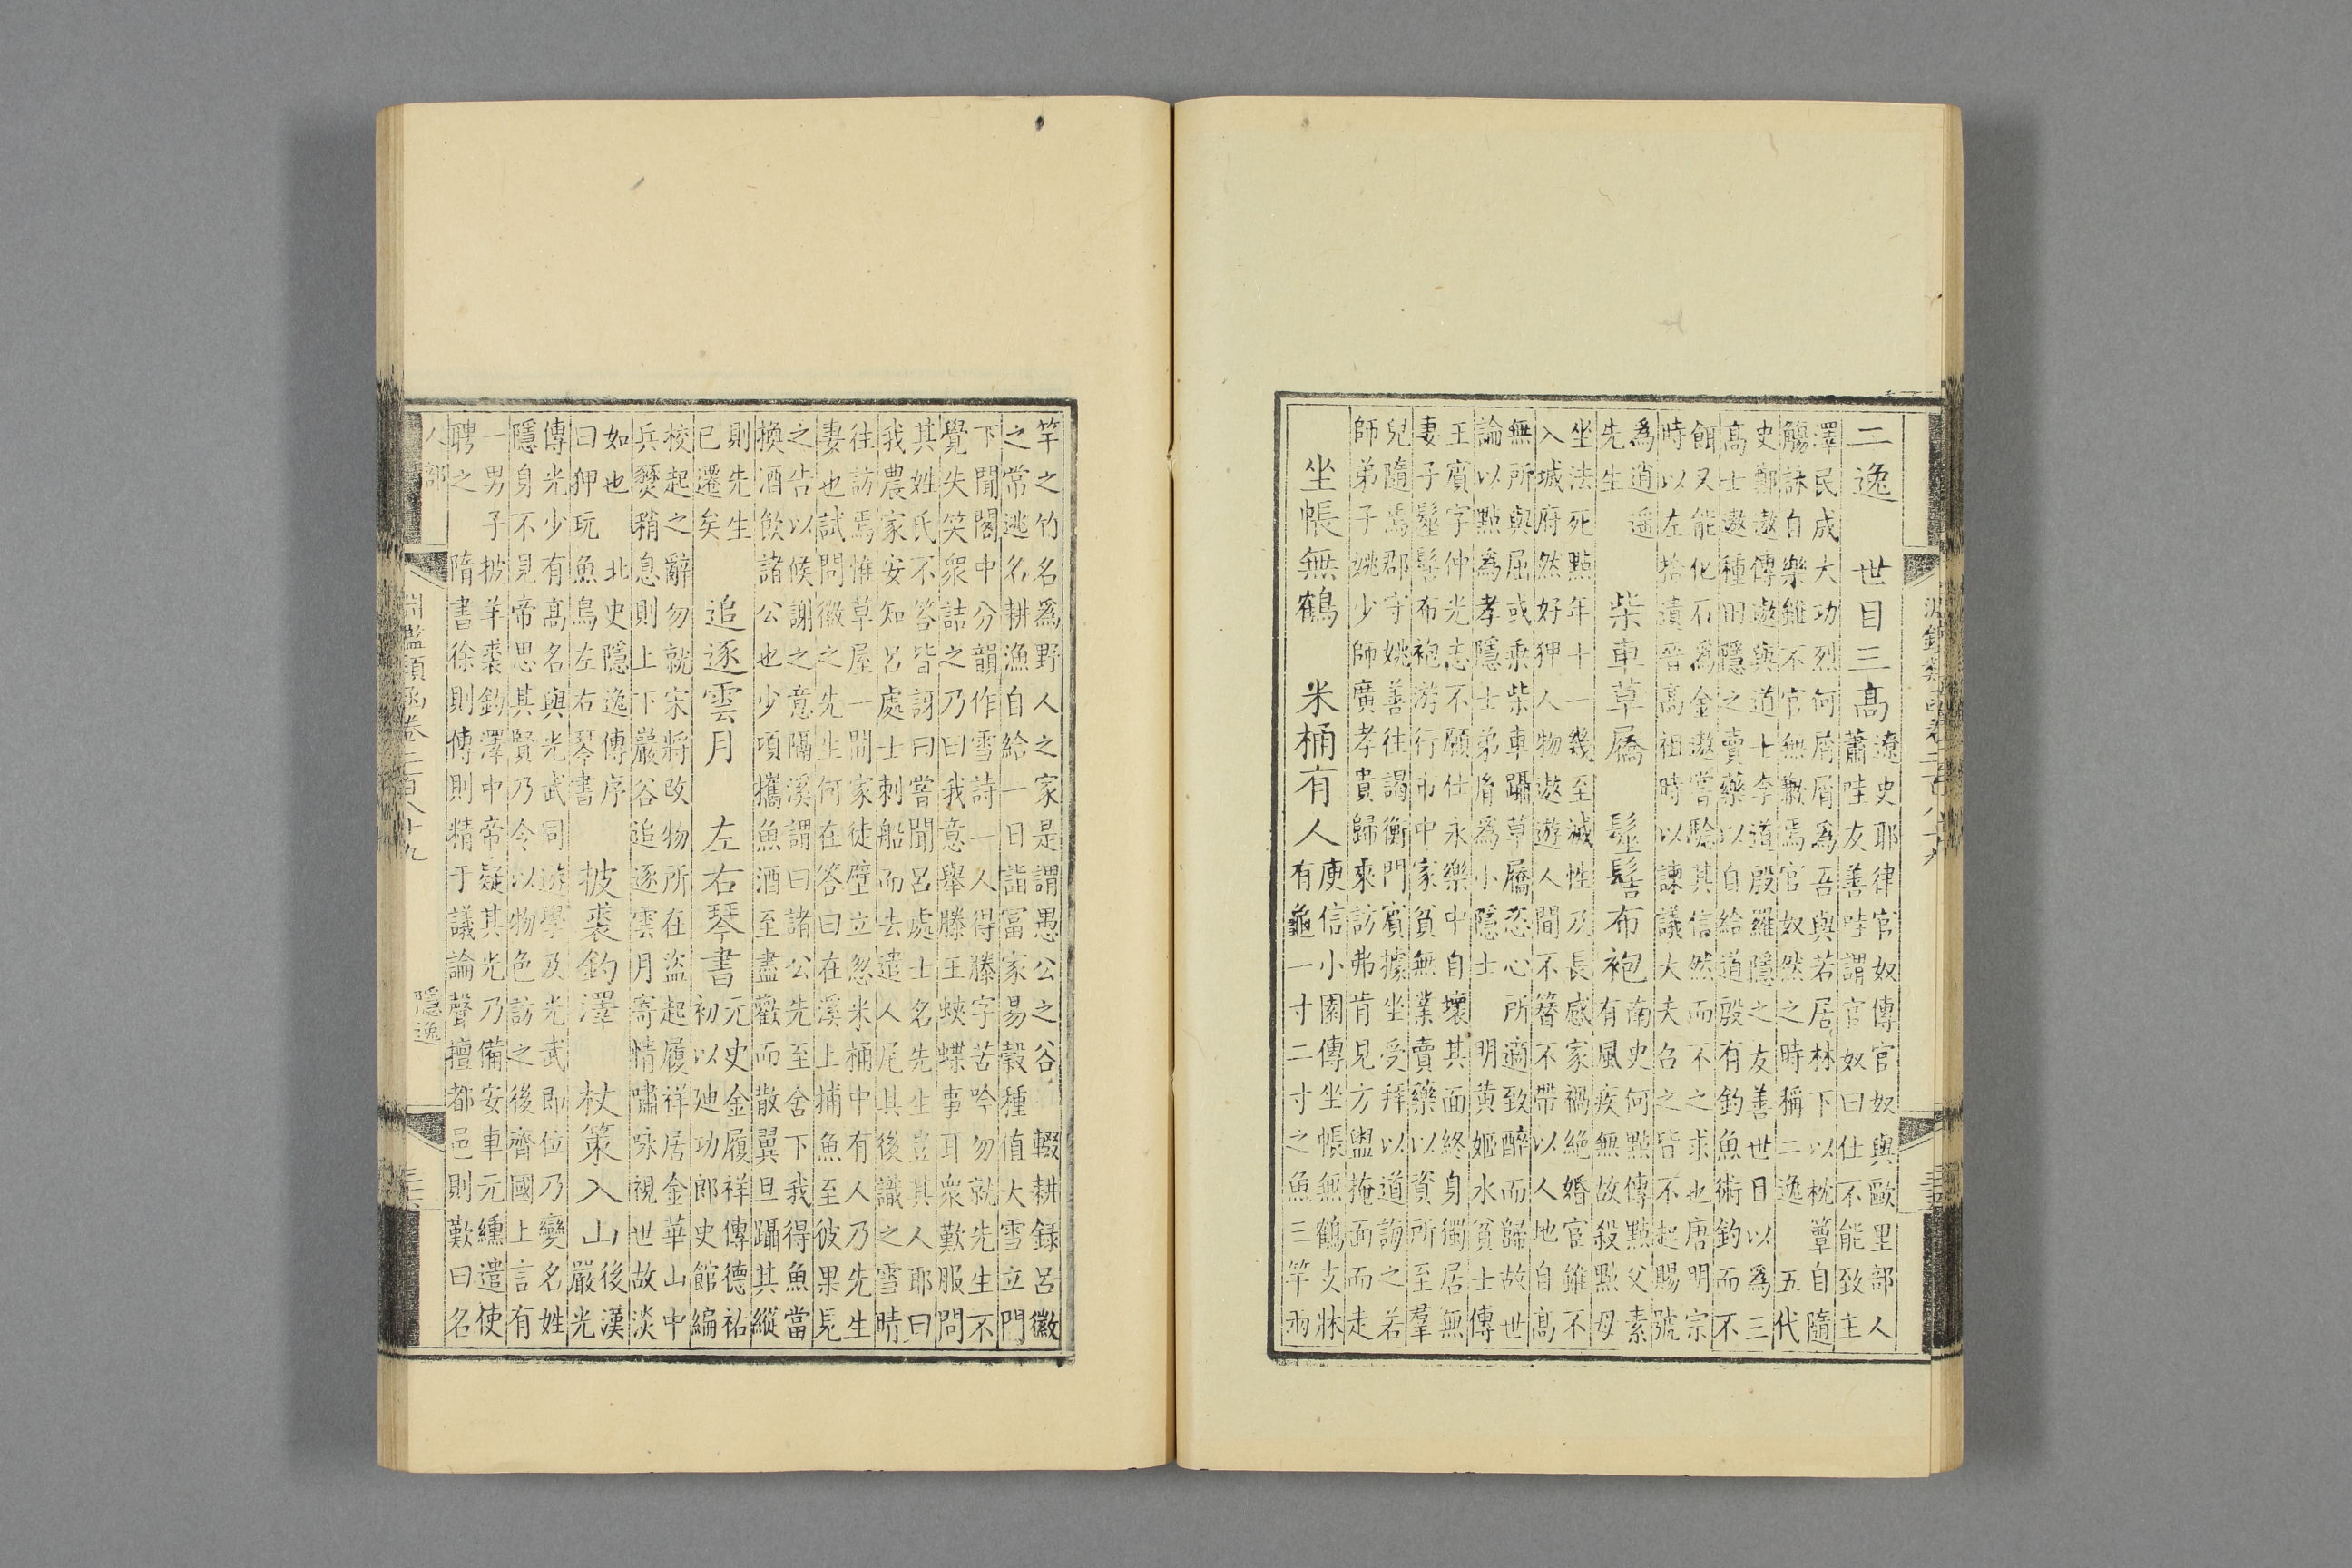 二逸　世目三高
遼史耶律官奴傳官奴與歐里部人
蕭哇友善哇謂官奴曰仕不能致主
澤民成大功烈何屑屑爲吾與若居林下以枕簟自隨
觴詠自樂雖不官無歉焉官奴然之時稱二逸　五代
史鄭遨傳遨與道士李道殷羅隱之友善世目以爲三
高士遨種田隱之賣藥以自給道殷有釣魚術釣而不
餌又能化石爲金遨嘗驗其信然而不之求也唐明宗
時以左拾遺晉高祖時以諫議大夫召之皆不起賜號
爲逍遥
先生
柴車草屩　鬆髻布袍
南史何點傳點父素
有風疾無故殺點母
坐法死點年十一幾至滅性及長感家禍絶婚宦雖不
入城府然好狎人物遨遊人間不簪不帶以人地自高
無所與屈或乘柴車躡草屩恣心所適致醉而歸故世
論以點爲孝隱士弟胤爲小隱士　明黄姬水貧士傳
王賓字仲光志不願仕永樂中自壞其面終身獨居無
妻子鬆髻布袍游行市中家貧無業賣藥以資所至羣
兒隨焉郡守姚善往謁衡門賓據坐受拜以道誨之若
師弟子姚少師廣孝貴歸來訪弗肯見方盥掩面而走
坐帳無鶴　米桶有人
庾信小園傳坐帳無鶴支牀
有龜一寸二寸之魚三竿兩
竿之竹名爲野人之家是謂愚公之谷　輟耕録吕徽
之常逃名耕漁自給一日詣冨家易榖種值大雪立門
下聞閣中分韻作雪詩一人得滕字苦吟勿就先生不
覺失笑衆詰之乃曰我意舉滕王蛺蝶事耳衆歎服問
其姓氏不答皆訝曰嘗聞吕處士名先生豈其人耶曰
我農家安知吕處士刺船而去遣人尾其後識之雪晴
往訪焉惟草屋一間家徒壁立忽米桶中有人乃先生
妻也試問徽之先生何在答曰在溪上捕魚至彼果見
之告以候謝之意隔溪謂曰諸公先至舍下我得魚當
換酒飲諸公也少頃攜魚酒至盡歡而散翼旦躡其縱
則先生
已遷矣
追逐雲月　左右琴書
元史金履祥傳德祐
初以廸功郎史館編
校起之辭勿就宋將改物所在盗起履祥居金華山中
兵燹稍息則上下巖谷追逐雲月寄情嘯咏視世故淡
如也　北史隱逸傳序
曰狎玩魚鳥左右琴書
披裘釣澤　杖策入山
後漢
嚴光
傳光少有高名與光武同遊學及光武即位乃變名姓
隱身不見帝思其賢乃令以物色訪之後齊國上言有
一男子披羊裘釣澤中帝疑其光乃備安車元纁遣使
聘之　隋書徐則傳則精于議論聲擅都邑則歎曰名
人部
淵鑑類函卷二百八十九
隱逸